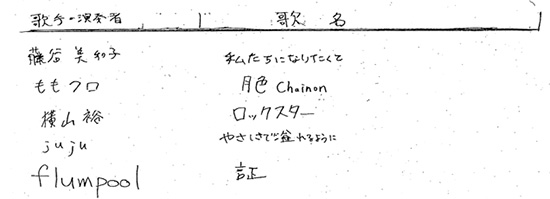 歌手・演奏者 歌名
藤谷美和子 私たちになりたくて
ももクロ 月色Chainon
横山裕 ロックスター
juju やさしさで溢れるように
flumpool 証